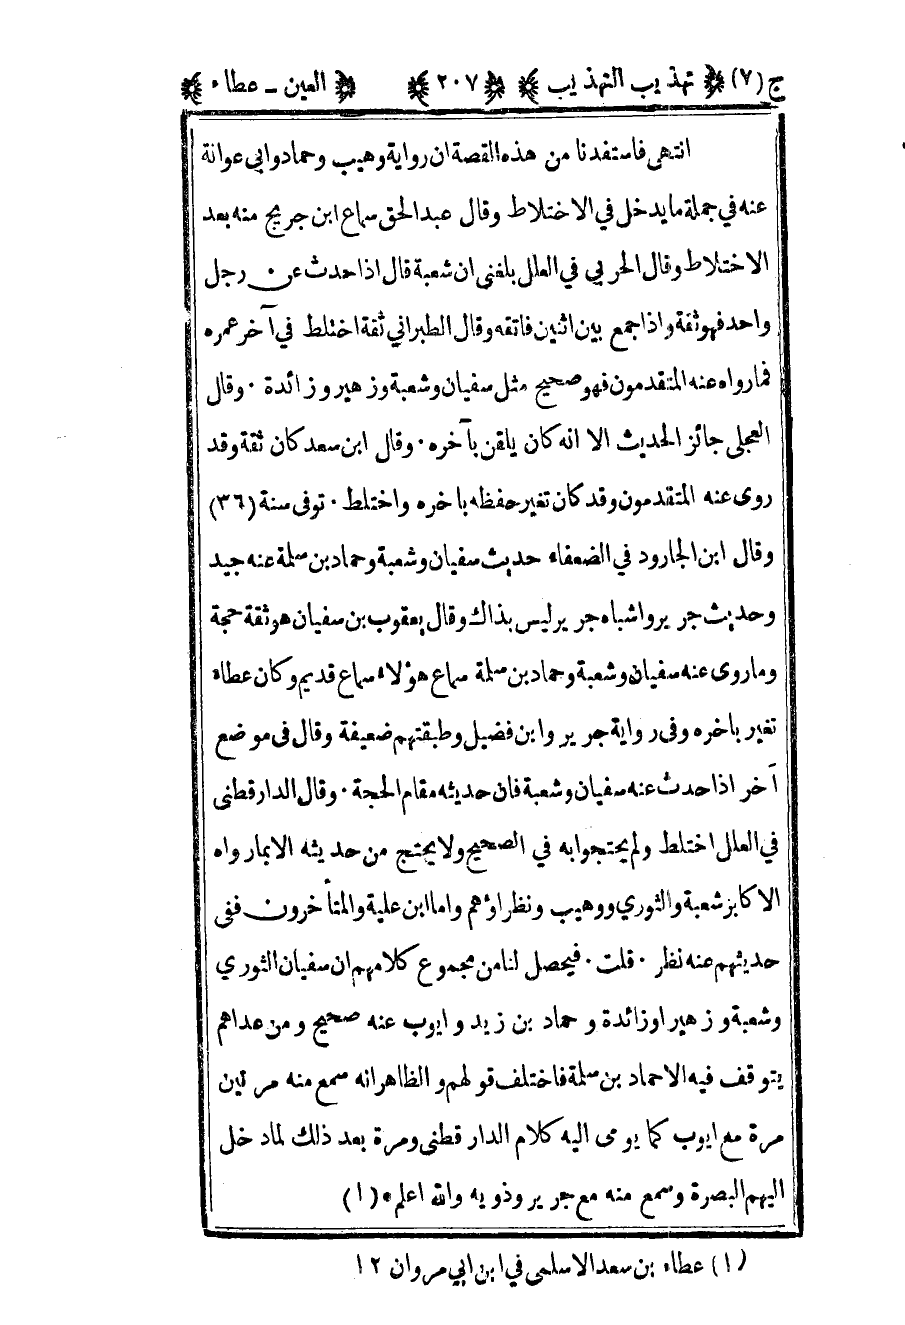 ج (٧) تهذيب التهذيب ٢٠٧ العين - عطاء
انتهى فاستفدنا من هذه القصة ان رواية وهيب وحماد وابي عوانة
عنه في جملة ما يدخل في الاختلاط وقال عبد الحق سماع ابن جريج منه بعد
الاختلاط وقال الحربي في العلل بلغني ان شعبة قال اذا حدث عن رجل
واحد فهو ثقة واذا جمع بين اثنين فاتقه وقال الطبراني ثقة اختلط في آخر عمره
فما رواه عنه المتقدمون فهو صحيح مثل سفيان وشعبة وزهير وزائدة · وقال
العجلي جائز الحديث الا انه كان يلقن بآخره · وقال ابن سعد كان ثقة وقد
روى عنه المتقدمون وقد كان تغير حفظه باخره واختلط · توفى سنة (٣٦)
وقال ابن الجارود في الضعفاء حديث سفيان وشعبة وحماد بن سلمة عنه جيد
وحديث جرير واشباه جرير ليس بذاك وقال يعقوب بن سفيان هو ثقة حجة
وما روى عنه سفيان وشعبة وحماد بن سلمة سماع هؤلاء سماع قديم وكان عطاء
تغير باخره وفى رواية جرير وابن فضيل وطبقتهم ضعيفة وقال فى موضع
آخر اذا حدث عنه سفيان وشعبة فان حديثه مقام الحجة · وقال الدارقطنى
في العلل اختلط ولم يحتجوا به في الصحيح ولا يحتج من حديثه الا بما رواه
الاكابر شعبة والثوري ووهيب ونظراؤهم واما ابن علية والمتأخرون ففى
حديثهم عنه نظر · قلت · فيحصل لنا من مجموع كلامهم ان سفيان الثوري
وشعبة وزهيرا وزائدة وحماد بن زيد وايوب عنه صحيح ومن عداهم
يتوقف فيه الا حماد بن سلمة فاختلف قولهم والظاهر انه سمع منه مرتين
مرة مع ايوب كما يومى اليه كلام الدارقطنى ومرة بعد ذلك لما دخل
اليهم البصرة وسمع منه مع جرير وذويه والله اعلم · (١)
(١) عطاء بن سعد الاسلمى في ابن ابي مروان ١٢